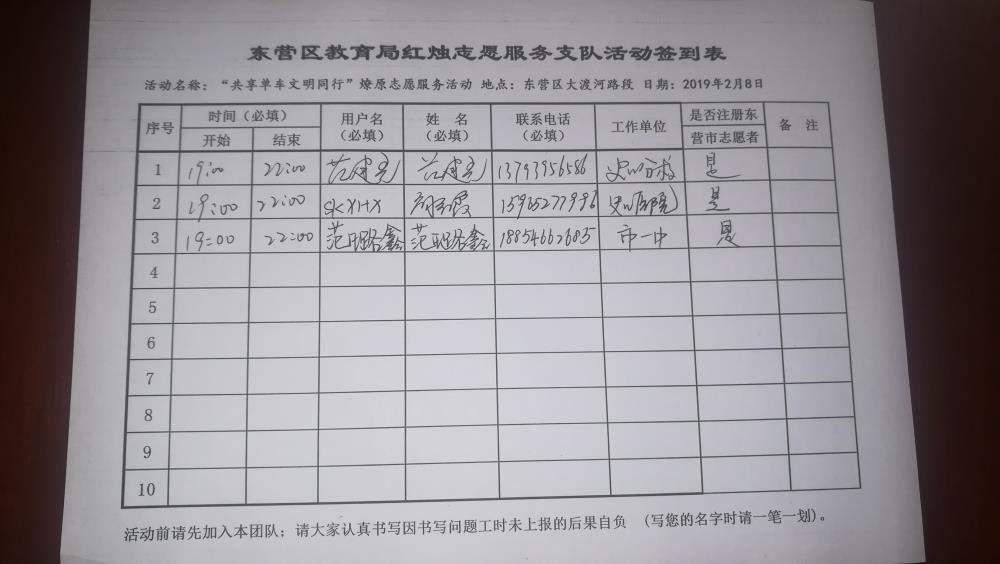 东营区教育局红烛志愿服务支队活动签到表
活动名称：“共享单车文明同行”燎原志愿服务活动 地点：东营区大渡河路段 日期：2019年2月8日
序号 时间（必填） 用户名（必填） 姓 名（必填） 联系电话（必填） 工作单位 是否注册东营市志愿者 备 注
开始 结束
1 19:00 22:00 13793956586 是
2 19:00 22:00 SKXHX 15965277996 是
3 19:00 22:00 18854662685 市一中 是
4
5
6
7
8
9
10
活动前请先加入本团队；请大家认真书写因书写问题工时未上报的后果自负 （写您的名字时请一笔一划）。